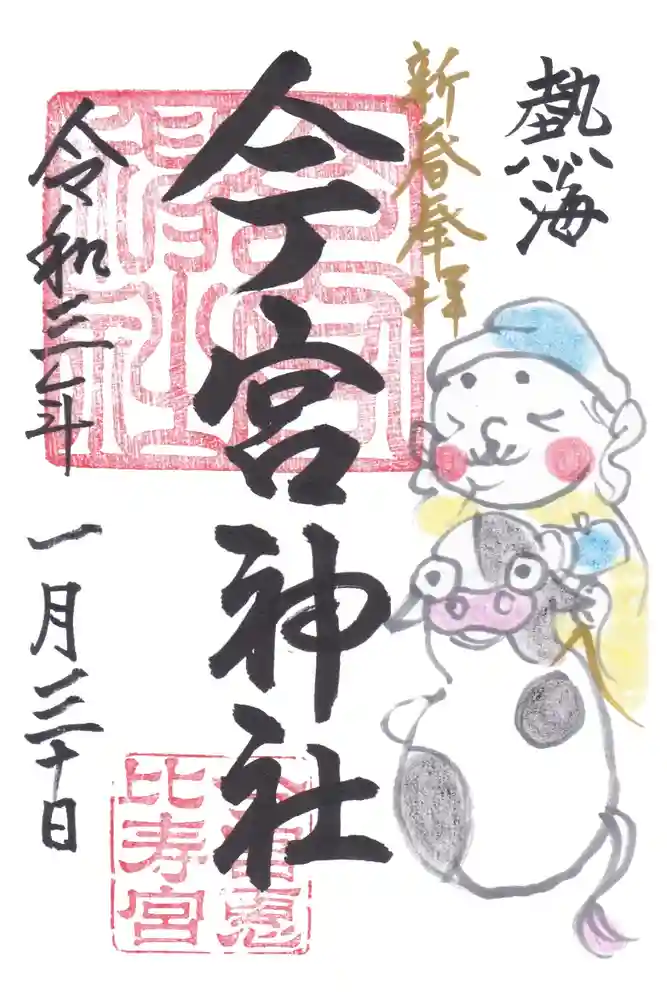 熱海
新春奉拝
今宮神社
令和三年 一月三十日
今宮恵
比寿宮